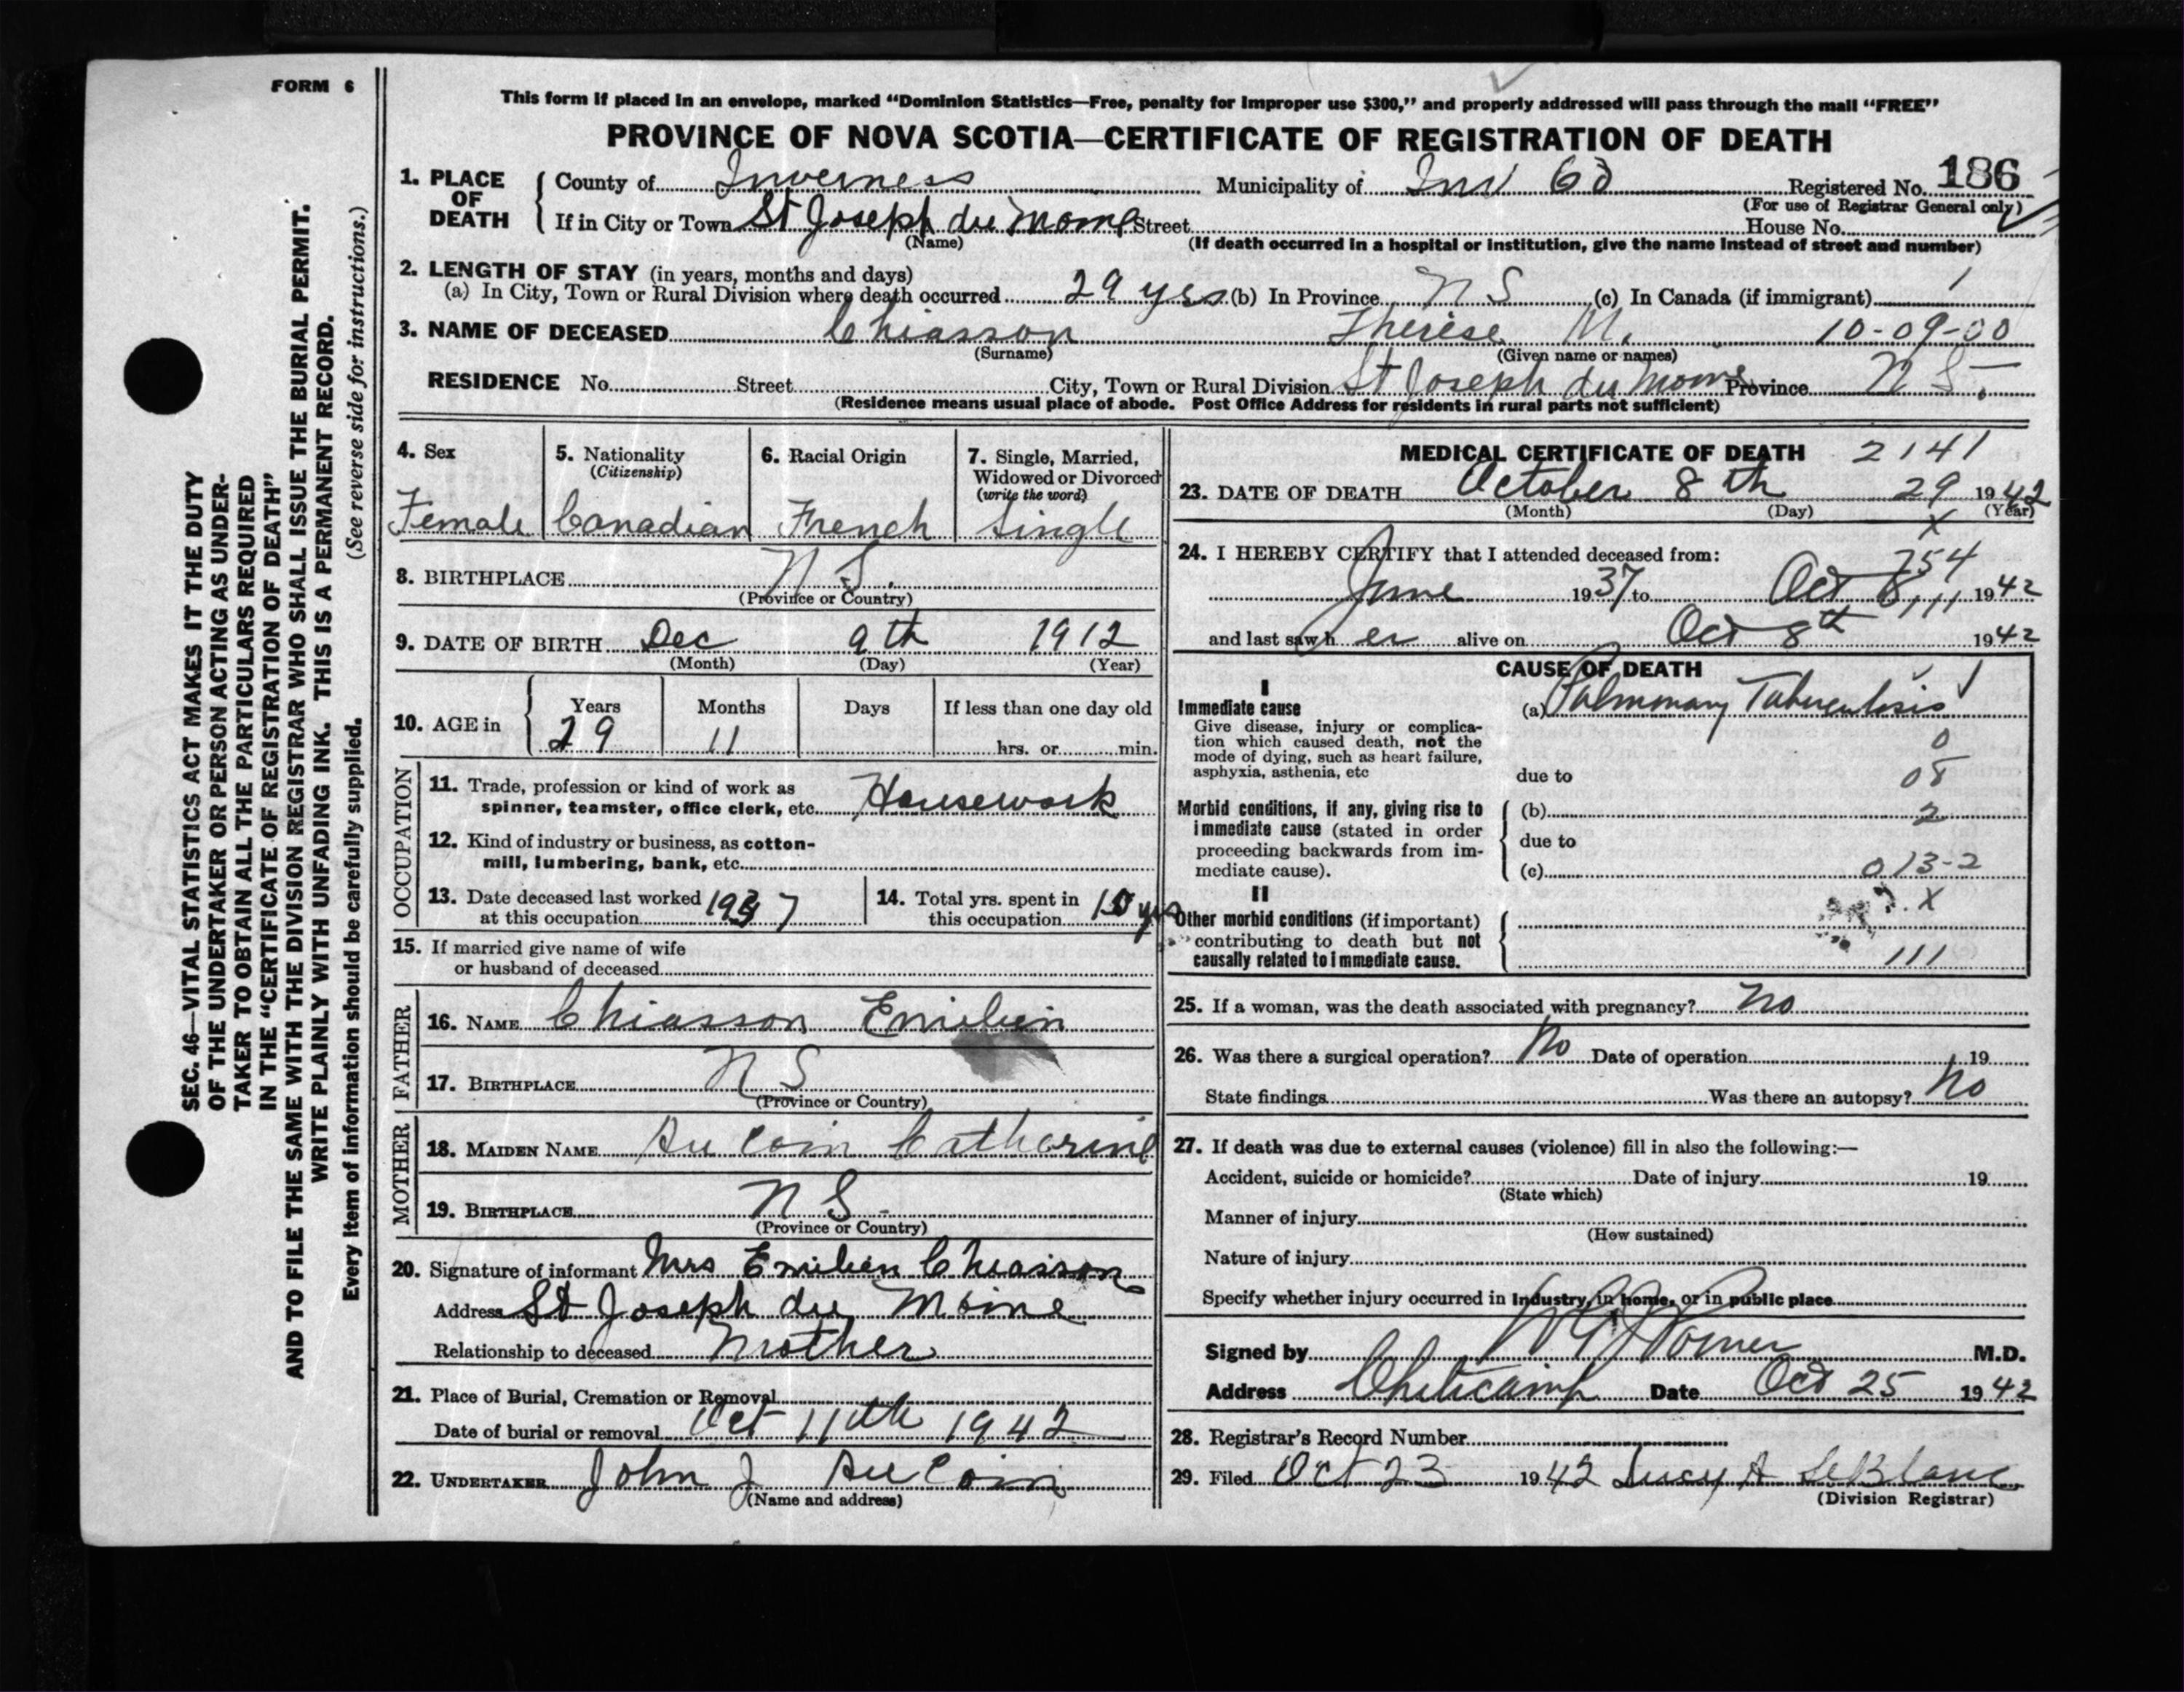 FORM 6
This form if placed in an envelope, marked “Dominion Statistics—Free, penalty for improper use $300,” and properly addressed will pass through the mail “FREE”
PROVINCE OF NOVA SCOTIA—CERTIFICATE OF REGISTRATION OF DEATH
1. PLACE OF DEATH County of Inverness Municipality of Inv Co Registered No. 186
(For use of Registrar General only)
If in City or Town St Joseph du Moine Street House No.
(Name) (If death occurred in a hospital or institution, give the name instead of street and number)
2. LENGTH OF STAY (in years, months and days)
(a) In City, Town or Rural Division where death occurred 29 yrs (b) In Province N S (c) In Canada (if immigrant) 1
3. NAME OF DECEASED Chiasson Therese M. 10-09-00
(Surname) (Given name or names)
RESIDENCE No. Street City, Town or Rural Division St Joseph du Moine Province N S.
(Residence means usual place of abode. Post Office Address for residents in rural parts not sufficient)
4. Sex Female
5. Nationality (Citizenship) Canadian
6. Racial Origin French
7. Single, Married, Widowed or Divorced (write the word) Single
8. BIRTHPLACE N S.
(Province or Country)
9. DATE OF BIRTH Dec 9th 1912
(Month) (Day) (Year)
10. AGE in Years Months Days If less than one day old
29 11 hrs. or min.
OCCUPATION
11. Trade, profession or kind of work as
spinner, teamster, office clerk, etc. Housework
12. Kind of industry or business, as cotton-
mill, lumbering, bank, etc.
13. Date deceased last worked at this occupation 1937
14. Total yrs. spent in this occupation 10 yrs
15. If married give name of wife
or husband of deceased
FATHER
16. NAME Chiasson Emilien
17. BIRTHPLACE N S
(Province or Country)
MOTHER
18. MAIDEN NAME Au Coin Catharine
19. BIRTHPLACE N S.
(Province or Country)
20. Signature of informant Mrs Emilien Chiasson
Address St Joseph du Moine
Relationship to deceased Mother
21. Place of Burial, Cremation or Removal
Date of burial or removal Oct 11th 1942
22. UNDERTAKER John J Au Coin
(Name and address)
MEDICAL CERTIFICATE OF DEATH 2141
23. DATE OF DEATH October 8th 29 1942
(Month) (Day) (Year)
X
24. I HEREBY CERTIFY that I attended deceased from:
754
June 1937 to Oct 8 1942
111
and last saw h er alive on Oct 8th 1942
CAUSE OF DEATH
I
Immediate cause (a) Pulmonary Tuberculosis
Give disease, injury or complica-
tion which caused death, not the
mode of dying, such as heart failure,
asphyxia, asthenia, etc due to
0
08
Morbid conditions, if any, giving rise to (b) 2
immediate cause (stated in order due to
proceeding backwards from im-
mediate cause). (c) 013-2
II
X
Other morbid conditions (if important)
contributing to death but not
causally related to immediate cause. 111
25. If a woman, was the death associated with pregnancy? No
26. Was there a surgical operation? No Date of operation 19
State findings Was there an autopsy? No
27. If death was due to external causes (violence) fill in also the following:—
Accident, suicide or homicide? Date of injury 19
(State which)
Manner of injury
(How sustained)
Nature of injury
Specify whether injury occurred in industry, in home, or in public place
Signed by M.D.
Address Cheticamp Date Oct 25 1942
28. Registrar's Record Number
29. Filed Oct 23 1942 Lucy A LeBlanc
(Division Registrar)
SEC. 46—VITAL STATISTICS ACT MAKES IT THE DUTY
OF THE UNDERTAKER OR PERSON ACTING AS UNDER-
TAKER TO OBTAIN ALL THE PARTICULARS REQUIRED
IN THE “CERTIFICATE OF REGISTRATION OF DEATH”
AND TO FILE THE SAME WITH THE DIVISION REGISTRAR WHO SHALL ISSUE THE BURIAL PERMIT.
WRITE PLAINLY WITH UNFADING INK. THIS IS A PERMANENT RECORD.
Every item of information should be carefully supplied. (See reverse side for instructions.)